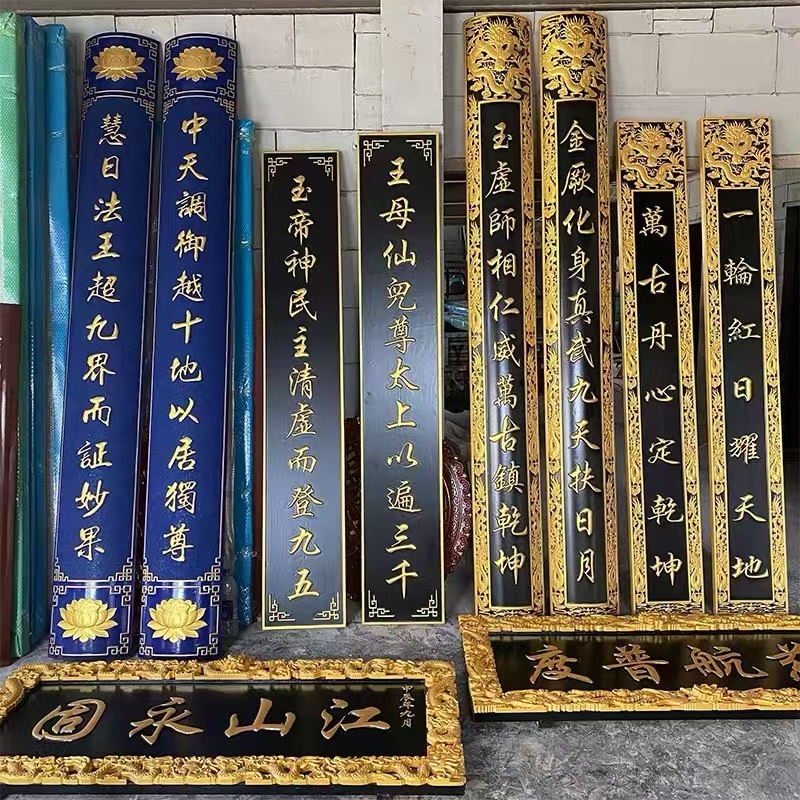 一輪紅日耀天地
萬古丹心定乾坤
金厥化身真武九天扶日月
玉虛師相仁威萬古鎮乾坤
王母仙兒尊太上以遍三千
玉帝神民主清虛而登九五
中天調御越十地以居獨尊
慧日法王超九界而証妙果
航普度
江山永固
九月